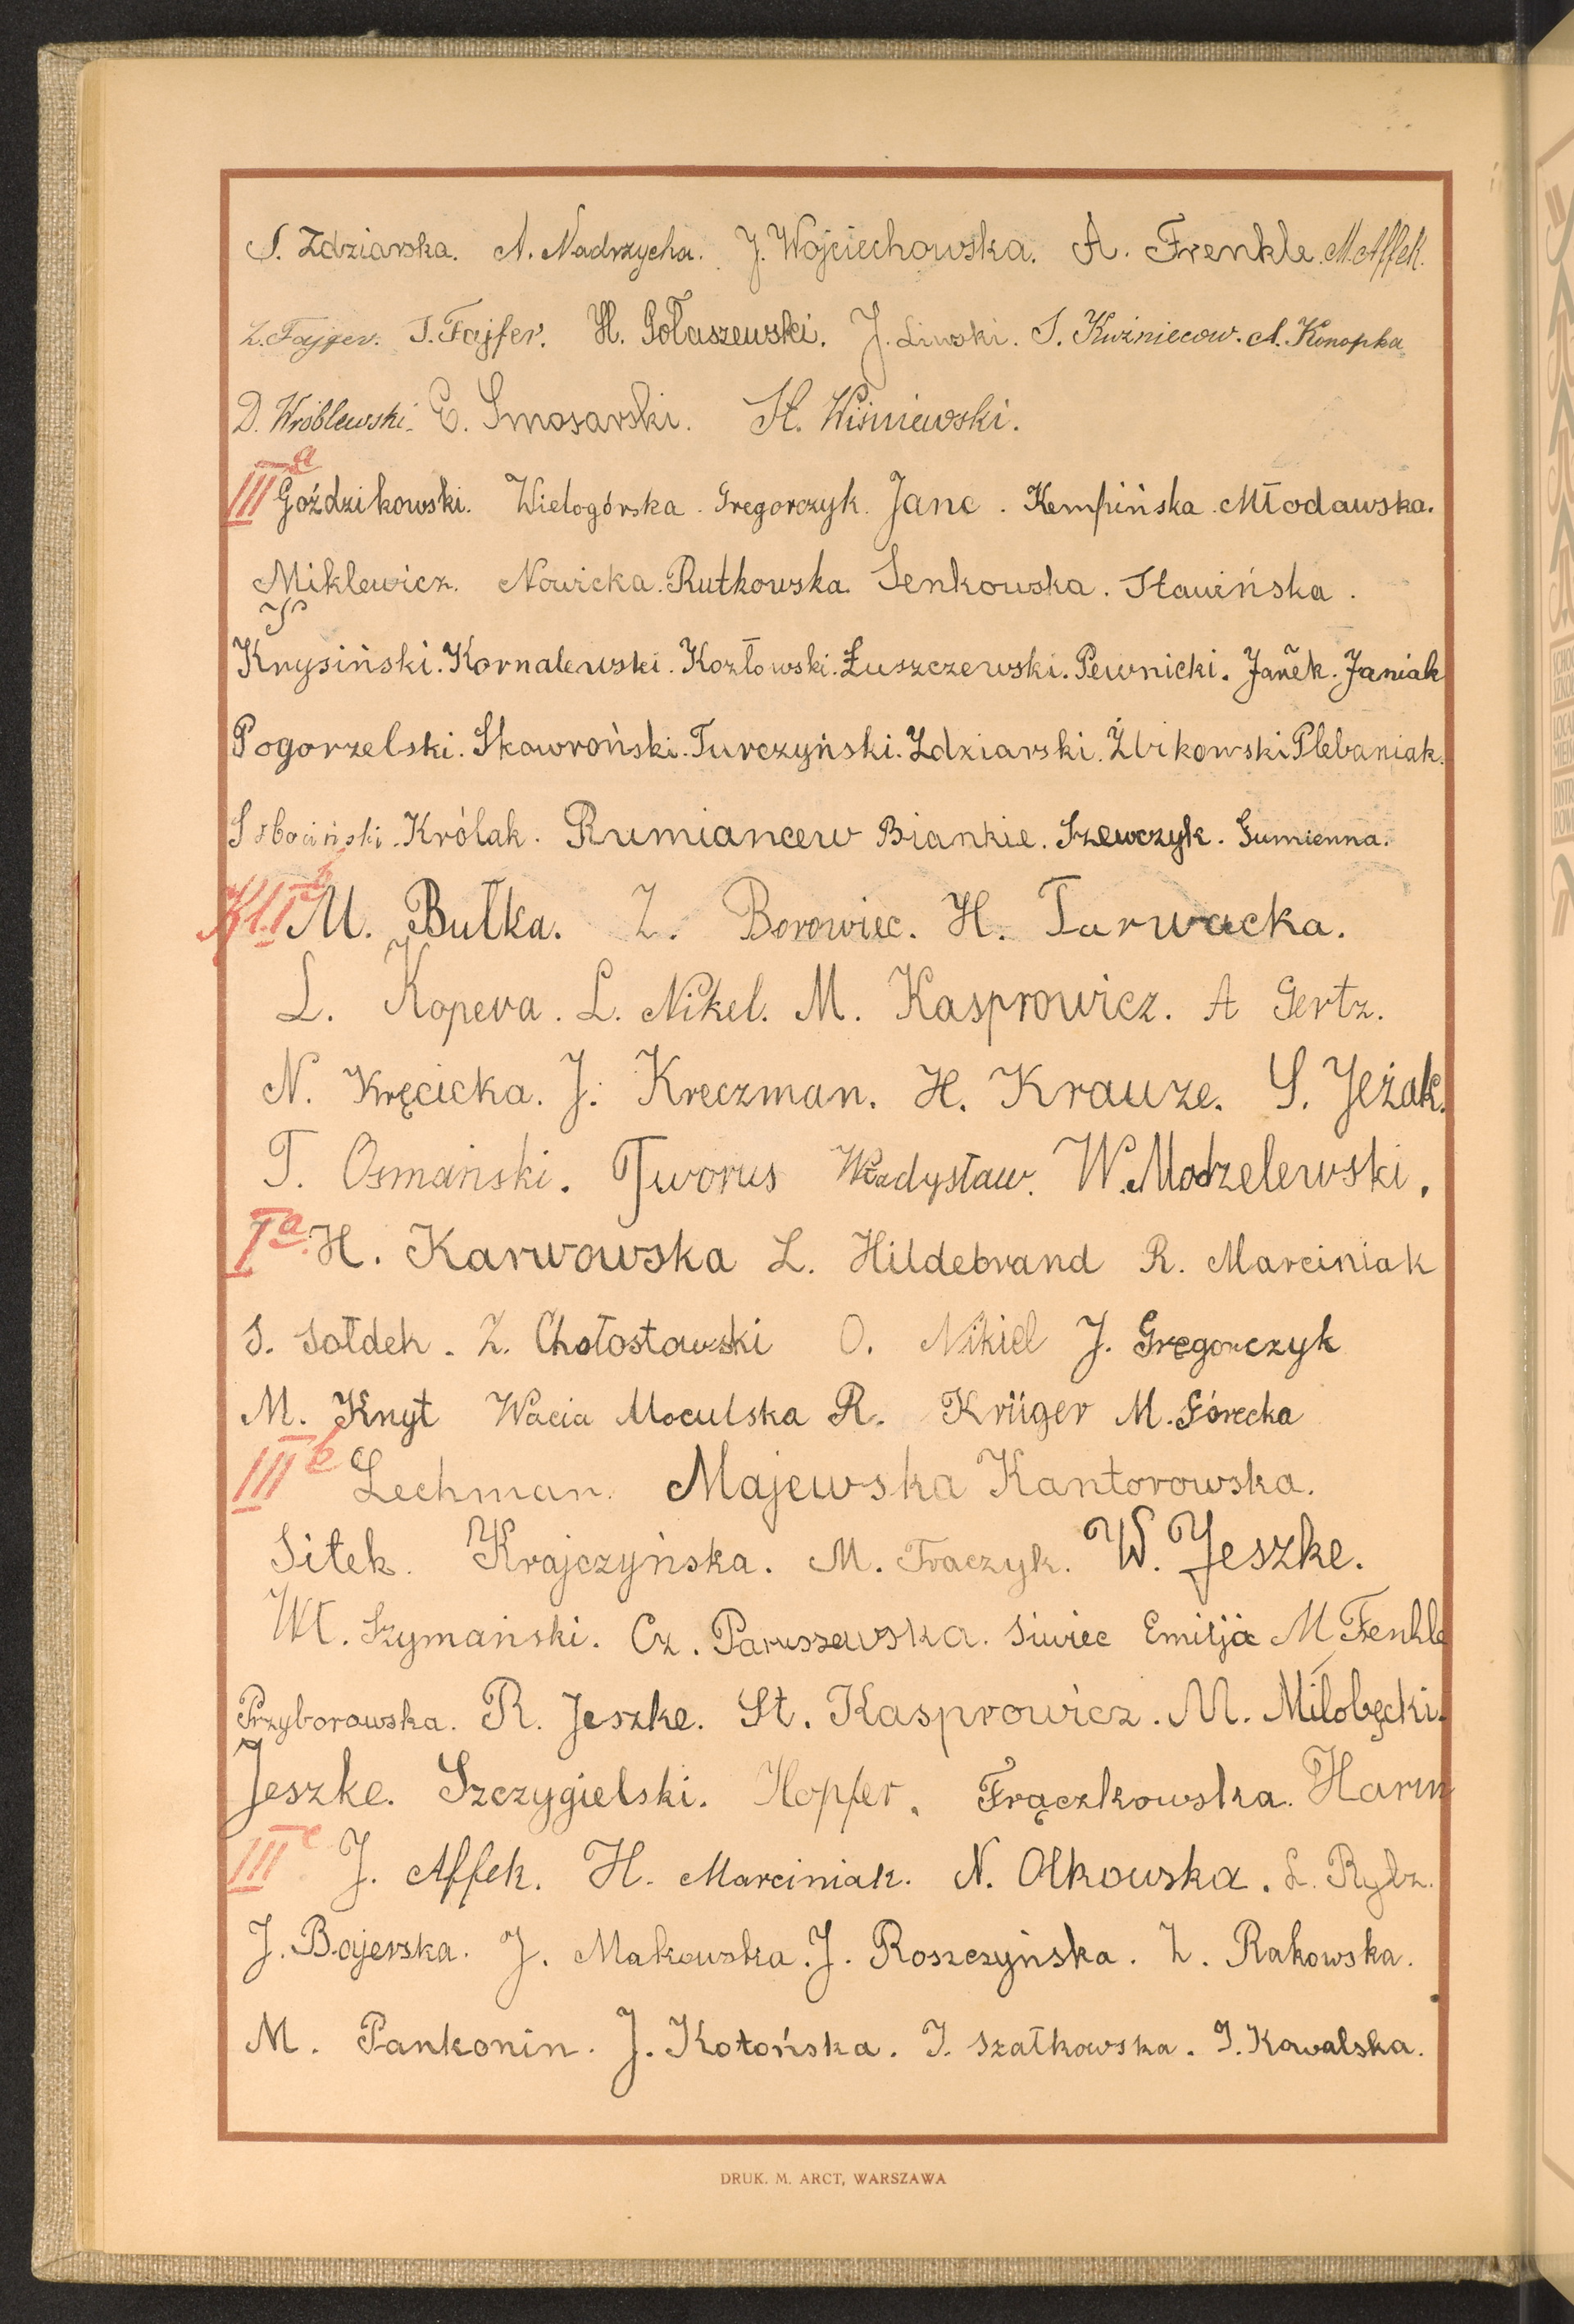 S. Zdziarska. N. Nadrzycha. J. Wojciechowska. A. Frenkle. M. Affek.
Z. Fajfer. I. Fajfer. H. Gołaszewski. J. Liwski. S. Kuźniecow. A. Konopka
D. Wróblewski. E. Smosarski. H. Wiśniewski.
III a Goździkowski. Wielogórska. Gregorczyk. Janc. Kempińska. Młodawska.
Miklewicz. Nowicka. Rutkowska. Senkowska. Sławińska.
Krysiński. Kornalewski. Kozłowski. Łuszczewski. Pewnicki. Janek. Janiak
Pogorzelski. Skowroński. Turczyński. Zdziarski. Żbikowski Plebaniak.
Królak. Rumiancew Biankie. Szewczyk. Gumienna.
Kl. I b M. Bułka. Z. Borowiec. H. Tarwacka.
L. Kopera. L. Nikel. M. Kasprowicz. A Gertz.
N. Kręcicka. J. Kreczman. H. Krauze. S. Jeżak.
T. Osmański. Tworus Władysław. W. Modzelewski.
I a H. Karwowska L. Hildebrand R. Marciniak
S. Sołdek. Z. Chołostowski O. Nikiel J. Gregorczyk
M. Knyt Wacia Moculska R. Krüger M. Górecka
III b Lechman. Majewska Kantorowska.
Sitek. Krajczyńska. M. Traczyk. W. Jeszke.
Wł. Szymański. Cz. Paruszewska. Siwiec Emilja M Frenkle
Przyborowska. R. Jeszke. St. Kasprowicz. M. Miłobęcki.
Jeszke. Szczygielski. Hopfer. Frączkowska. Harm
III c J. Affek. H. Marciniak. N. Olkowska. L. Rybz.
J. Bajerska. J. Makowska. J. Roszczyńska. Z. Rakowska.
M. Pankonin. J. Kotońska. I. Szałkowska. I. Kowalska.
DRUK. M. ARCT, WARSZAWA